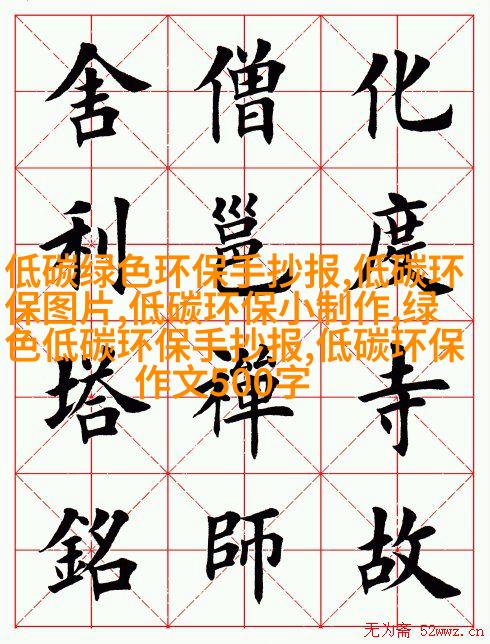 化度寺故
僧邕禪師
舍利塔銘
低碳绿色环保手抄报,低碳环
保图片,低碳环保小制作,绿
色低碳环保手抄报,低碳环保
作文500字
无为斋 52wwz.cn